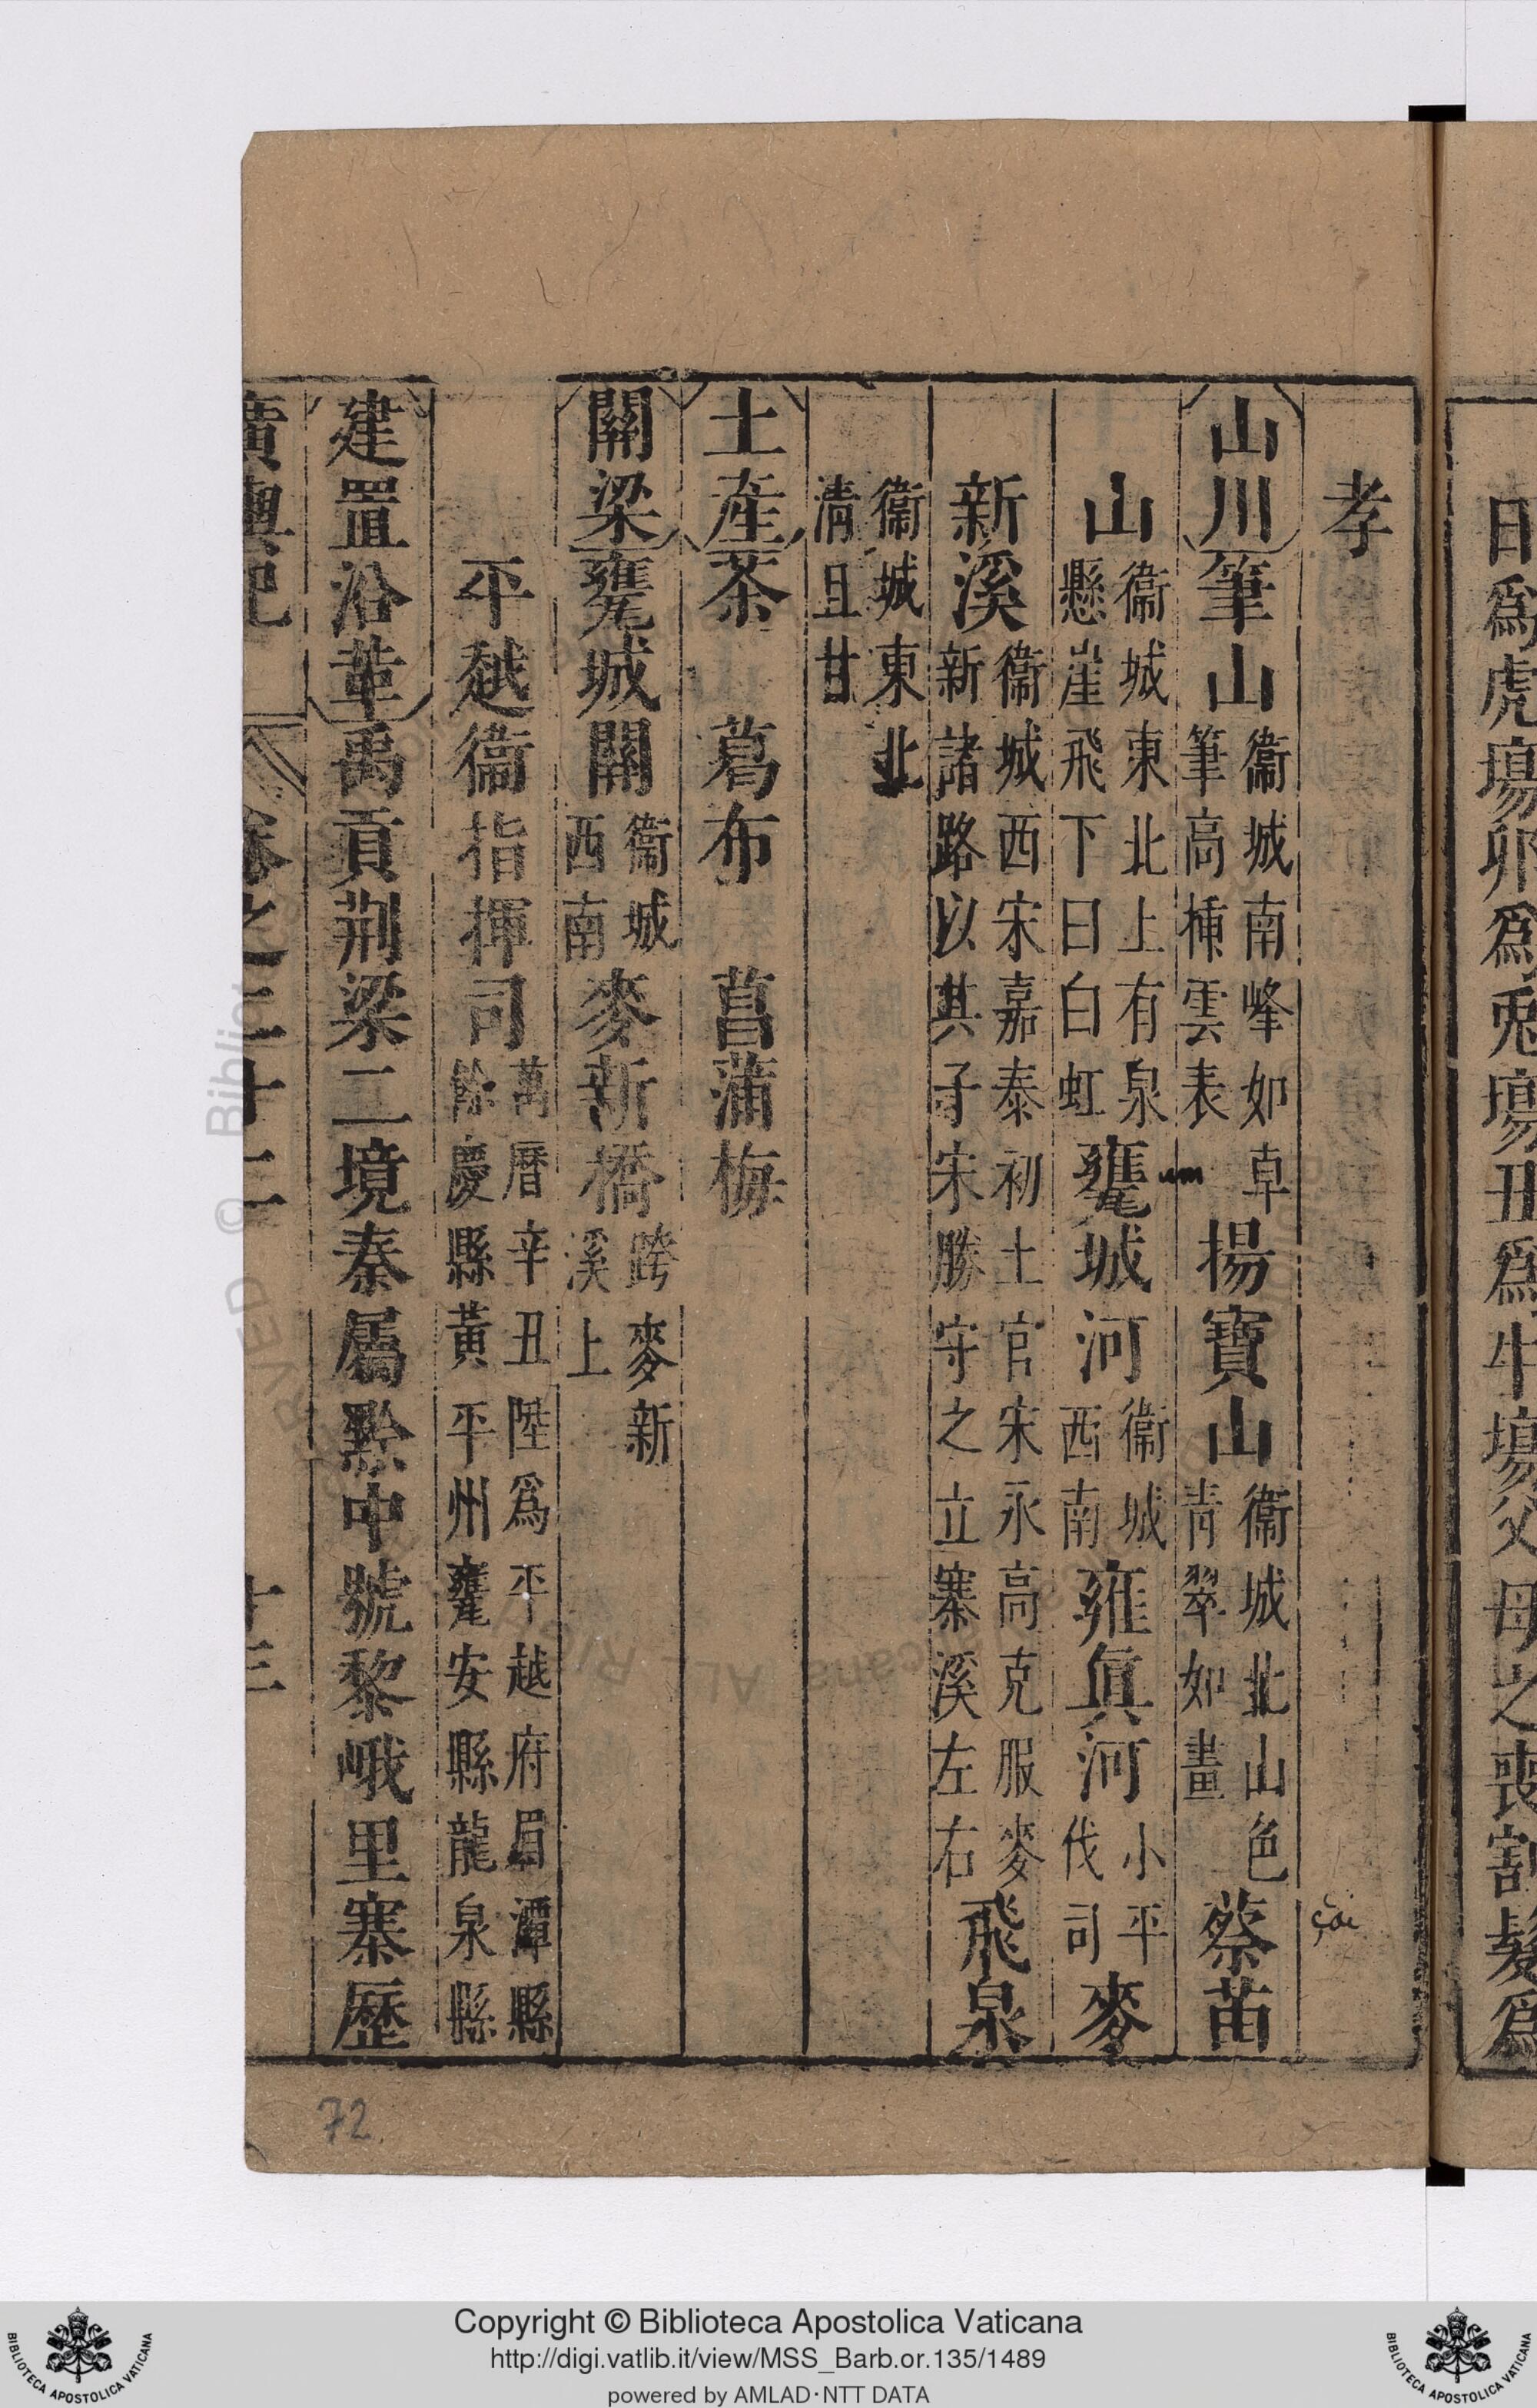 日爲虎塲卯爲兎塲丑爲牛塲父母之喪割髮爲
孝
山川筆山衞城南峰如卓筆高揷雲表揚寶山衞城北山色青翠如畫蔡苗
山衞城東北上有泉懸崖飛下曰白虹甕城河衞城西南雍眞河小平伐司麥
新溪衞城西宋嘉泰初土官宋永高克服麥新諸路以其子宋勝守之立寨溪左右飛泉
衞城東北清且甘
土產茶 葛布 菖蒲 梅
關梁甕城關衞城西南麥新橋跨麥新溪上
平越衞指揮司萬曆辛丑陞爲平越府眉潭縣餘慶縣黃平州甕安縣龍泉縣
建置沿革禹貢荆梁二境秦屬黔中號黎峨里寨歷
廣輿記 卷之二十二 十三
72
Copyright © Biblioteca Apostolica Vaticana
http://digi.vatlib.it/view/MSS_Barb.or.135/1489
powered by AMLAD·NTT DATA
BIBLIOTECA APOSTOLICA VATICANA
BIBLIOTECA APOSTOLICA VATICANA